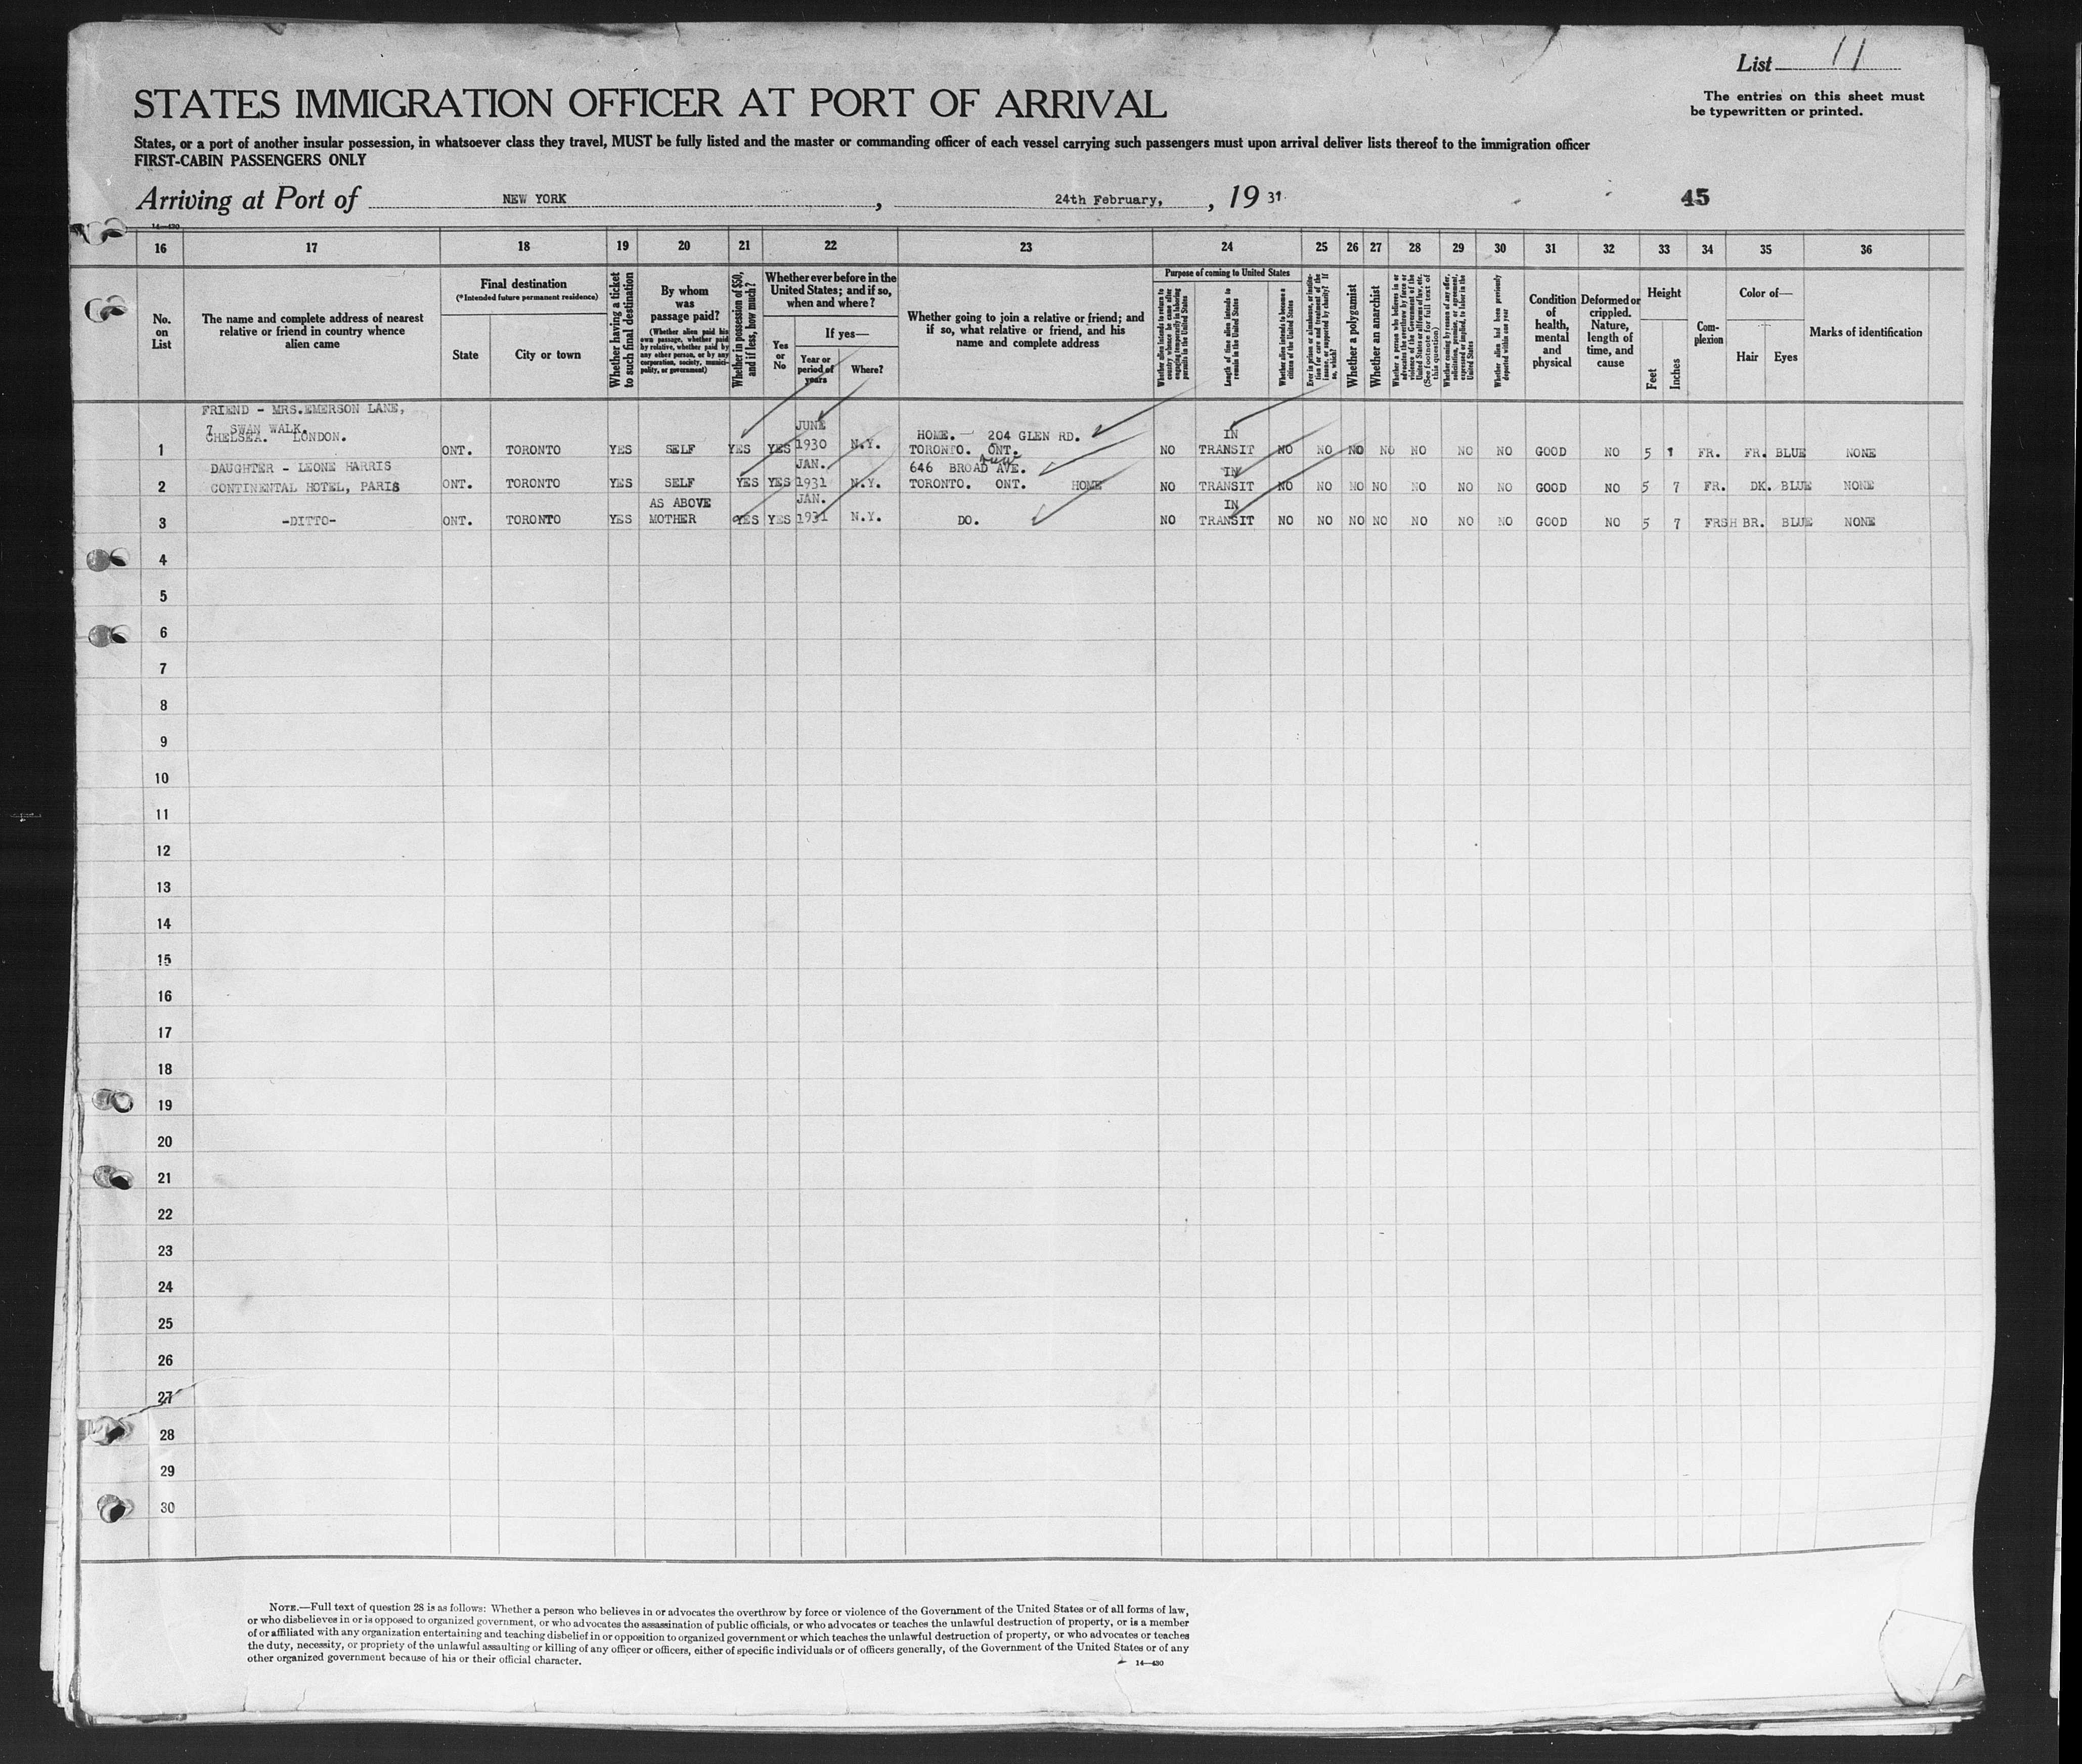 List 11
The entries on this sheet must
be typewritten or printed.
STATES IMMIGRATION OFFICER AT PORT OF ARRIVAL
States, or a port of another insular possession, in whatsoever class they travel, MUST be fully listed and the master or commanding officer of each vessel carrying such passengers must upon arrival deliver lists thereof to the immigration officer
FIRST-CABIN PASSENGERS ONLY
Arriving at Port of NEW YORK, 24th February, 1931
45
14—430
16 17 18 19 20 21 22 23 24 25 26 27 28 29 30 31 32 33 34 35 36
No. on List
The name and complete address of nearest relative or friend in country whence alien came
Final destination
(*Intended future permanent residence)
State
City or town
Whether having a ticket to such final destination
By whom was passage paid?
(Whether alien paid his own passage, whether paid by relative, whether paid by any other person, or by any corporation, society, municipality, or government)
Whether in possession of $50, and if less, how much?
Whether ever before in the United States; and if so, when and where?
Yes or No
If yes—
Year or period of years
Where?
Whether going to join a relative or friend; and if so, what relative or friend, and his name and complete address
Purpose of coming to United States
Whether alien intends to return to country whence he came after engaging temporarily in laboring pursuits in the United States
Length of time alien intends to remain in the United States
Whether alien intends to become a citizen of the United States
Ever in prison or almshouse, or institution for care and treatment of the insane, or supported by charity? If so, which?
Whether a polygamist
Whether an anarchist
Whether a person who believes in or advocates the overthrow by force or violence of the Government of the United States or all forms of law, etc. (See footnote for full text of this question)
Whether coming by reason of any offer, solicitation, promise, or agreement, expressed or implied, to labor in the United States
Whether alien had been previously deported within one year
Condition of health, mental and physical
Deformed or crippled. Nature, length of time, and cause
Height
Feet
Inches
Complexion
Color of—
Hair
Eyes
Marks of identification
FRIEND - MRS.EMERSON LANE,
7 SWAN WALK.
CHELSEA. LONDON.
1 ONT. TORONTO YES SELF YES YES JUNE 1930 N.Y. HOME. - 204 GLEN RD. TORONTO. ONT. NO IN TRANSIT NO NO NO NO NO NO NO GOOD NO 5 1 FR. FR. BLUE NONE
DAUGHTER - LEONE HARRIS
2 CONTINENTAL HOTEL, PARIS ONT. TORONTO YES SELF YES YES JAN. 1931 N.Y. 646 BROAD AVE. TORONTO. ONT. HOME NO IN TRANSIT NO NO NO NO NO NO NO GOOD NO 5 7 FR. DK. BLUE NONE
3 -DITTO- ONT. TORONTO YES AS ABOVE MOTHER YES YES JAN. 1931 N.Y. DO. NO IN TRANSIT NO NO NO NO NO NO NO GOOD NO 5 7 FRSH BR. BLUE NONE
4
5
6
7
8
9
10
11
12
13
14
15
16
17
18
19
20
21
22
23
24
25
26
27
28
29
30
NOTE.—Full text of question 28 is as follows: Whether a person who believes in or advocates the overthrow by force or violence of the Government of the United States or of all forms of law,
or who disbelieves in or is opposed to organized government, or who advocates the assassination of public officials, or who advocates or teaches the unlawful destruction of property, or is a member
of or affiliated with any organization entertaining and teaching disbelief in or opposition to organized government or which teaches the unlawful destruction of property, or who advocates or teaches
the duty, necessity, or propriety of the unlawful assaulting or killing of any officer or officers, either of specific individuals or of officers generally, of the Government of the United States or of any
other organized government because of his or their official character.
14—430